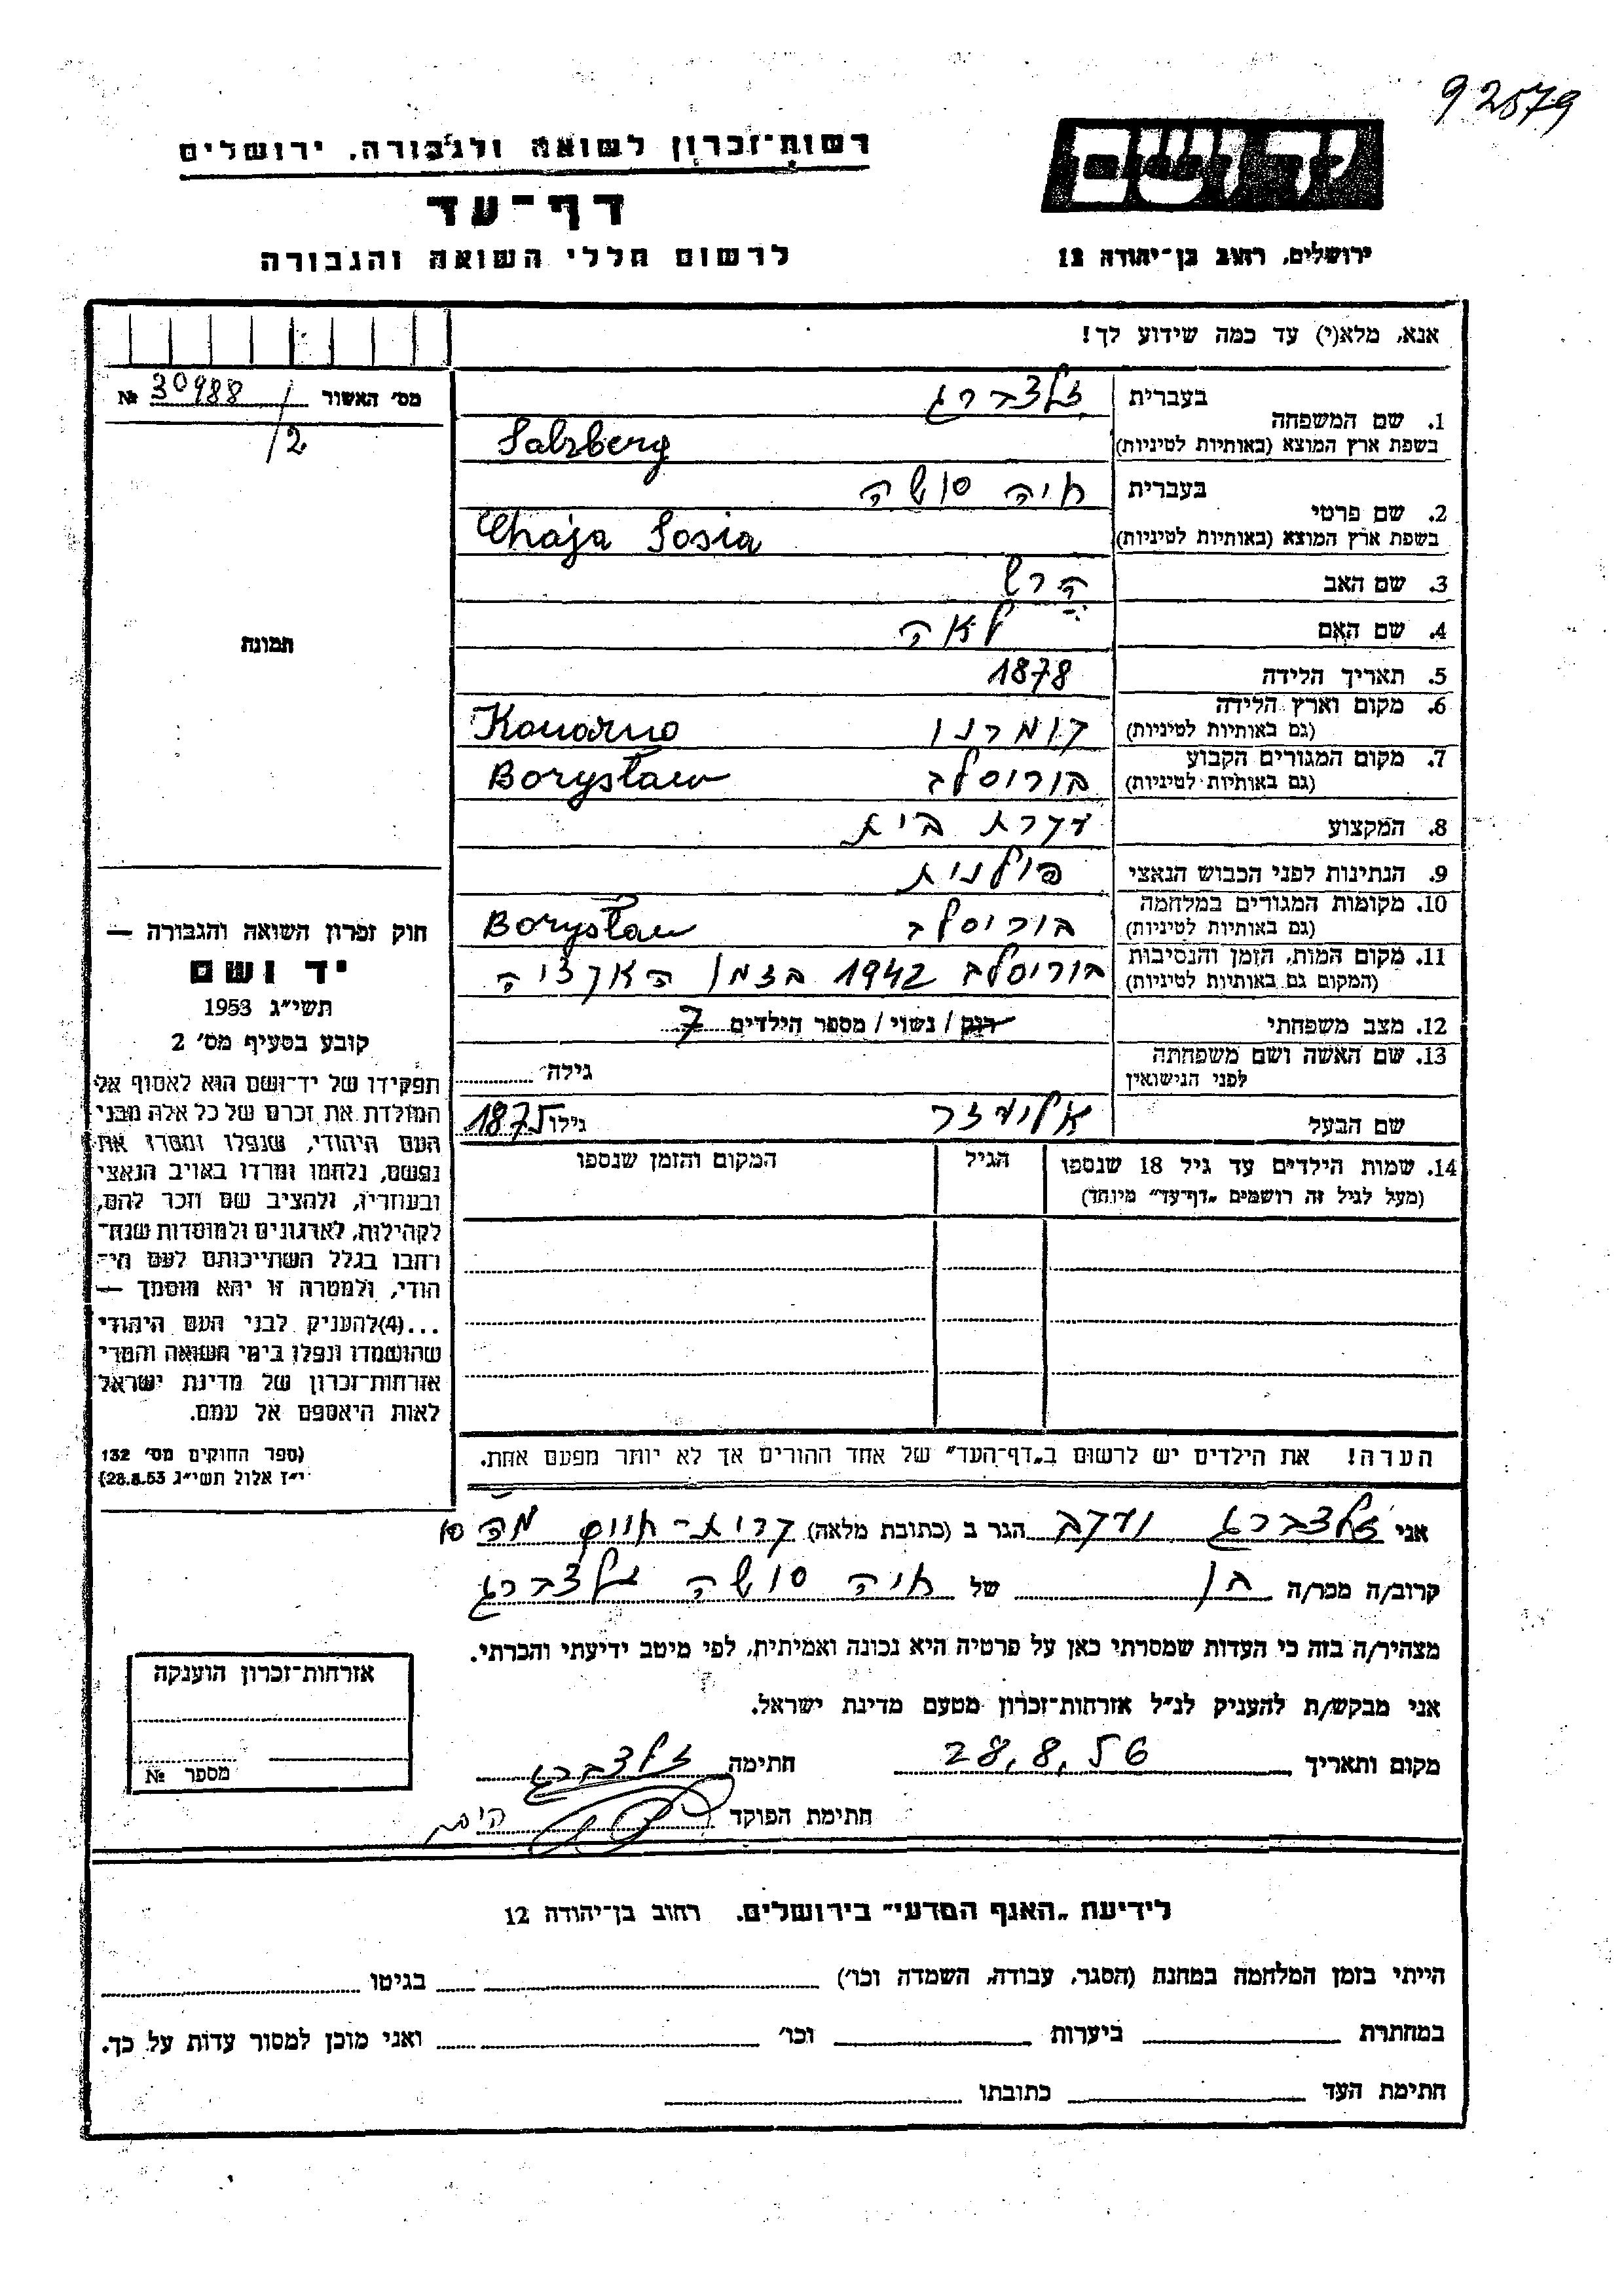 92579
רשות־זכרון לשואה ולגבורה, ירושלים
יד ושם
דף־עד
לרשום חללי השואה והגבורה
ירושלים, רחוב בן־יהודה 12
אנא, מלא(י) עד כמה שידוע לך!
מס׳ האשור 30988 №
/2
1. שם המשפחה
בעברית זלצברג
בשפת ארץ המוצא (באותיות לטיניות) Salzberg
2. שם פרטי
בעברית חיה סושה
בשפת ארץ המוצא (באותיות לטיניות) Chaja Sosia
3. שם האב הרש
4. שם האם לאה
תמונה
5. תאריך הלידה 1878
6. מקום וארץ הלידה
(גם באותיות לטיניות) קומרנו Komarno
7. מקום המגורים הקבוע
(גם באותיות לטיניות) בוריסלב Borysław
8. המקצוע עקרת בית
9. הנתינות לפני הכבוש הנאצי פולנית
10. מקומות המגורים במלחמה
(גם באותיות לטיניות) בוריסלב Borysław
11. מקום המות, הזמן והנסיבות
(המקום גם באותיות לטיניות) בוריסלב 1942 בזמן האקציה
12. מצב משפחתי רוק / נשוי / מספר הילדים 7
13. שם האשה ושם משפחתה
לפני הנישואין גילה
שם הבעל אליעזר גילו 1875
14. שמות הילדים עד גיל 18 שנספו
(מעל לגיל זה רושמים „דף־עד״ מיוחד)
הגיל
המקום והזמן שנספו
הערה! את הילדים יש לרשום ב„דף־העד״ של אחד ההורים אך לא יותר מפעם אחת.
חוק זכרון השואה והגבורה —
יד ושם
תשי״ג 1953
קובע בסעיף מס׳ 2
תפקידו של יד־ושם הוא לאסוף אל
המולדת את זכרם של כל אלה מבני
העם היהודי, שנפלו ומסרו את
נפשם, נלחמו ומרדו באויב הנאצי
ובעוזריו, ולהציב שם וזכר להם,
לקהילות, לארגונים ולמוסדות שנח־
רחבו בגלל השתייכותם לעם הי־
הודי, ולמטרה זו יהא מוסמך —
...(4)להעניק לבני העם היהודי
שהושמדו ונפלו בימי השואה והמרי
אזרחות־זכרון של מדינת ישראל
לאות היאספם אל עמם.
(ספר החוקים מס׳ 132
י״ז אלול תשי״ג 28.8.53)
אני זלצברג יעקב הגר ב (כתובת מלאה) קרית-חיים
קרוב/ה מכר/ה בן של חיה סושה זלצברג
מצהיר/ה בזה כי העדות שמסרתי כאן על פרטיה היא נכונה ואמיתית, לפי מיטב ידיעתי והכרתי.
אני מבקש/ת להעניק לנ״ל אזרחות־זכרון מטעם מדינת ישראל.
מקום ותאריך 28.8.56 חתימה זלצברג
חתימת הפוקד
אזרחות־זכרון הוענקה
מספר №
לידיעת „האגף המדעי״ בירושלים, רחוב בן־יהודה 12
הייתי בזמן המלחמה במחנה (הסגר, עבודה, השמדה וכו׳) בגיטו
במחתרת ביערות וכו׳ ואני מוכן למסור עדות על כך.
חתימת העד כתובתו